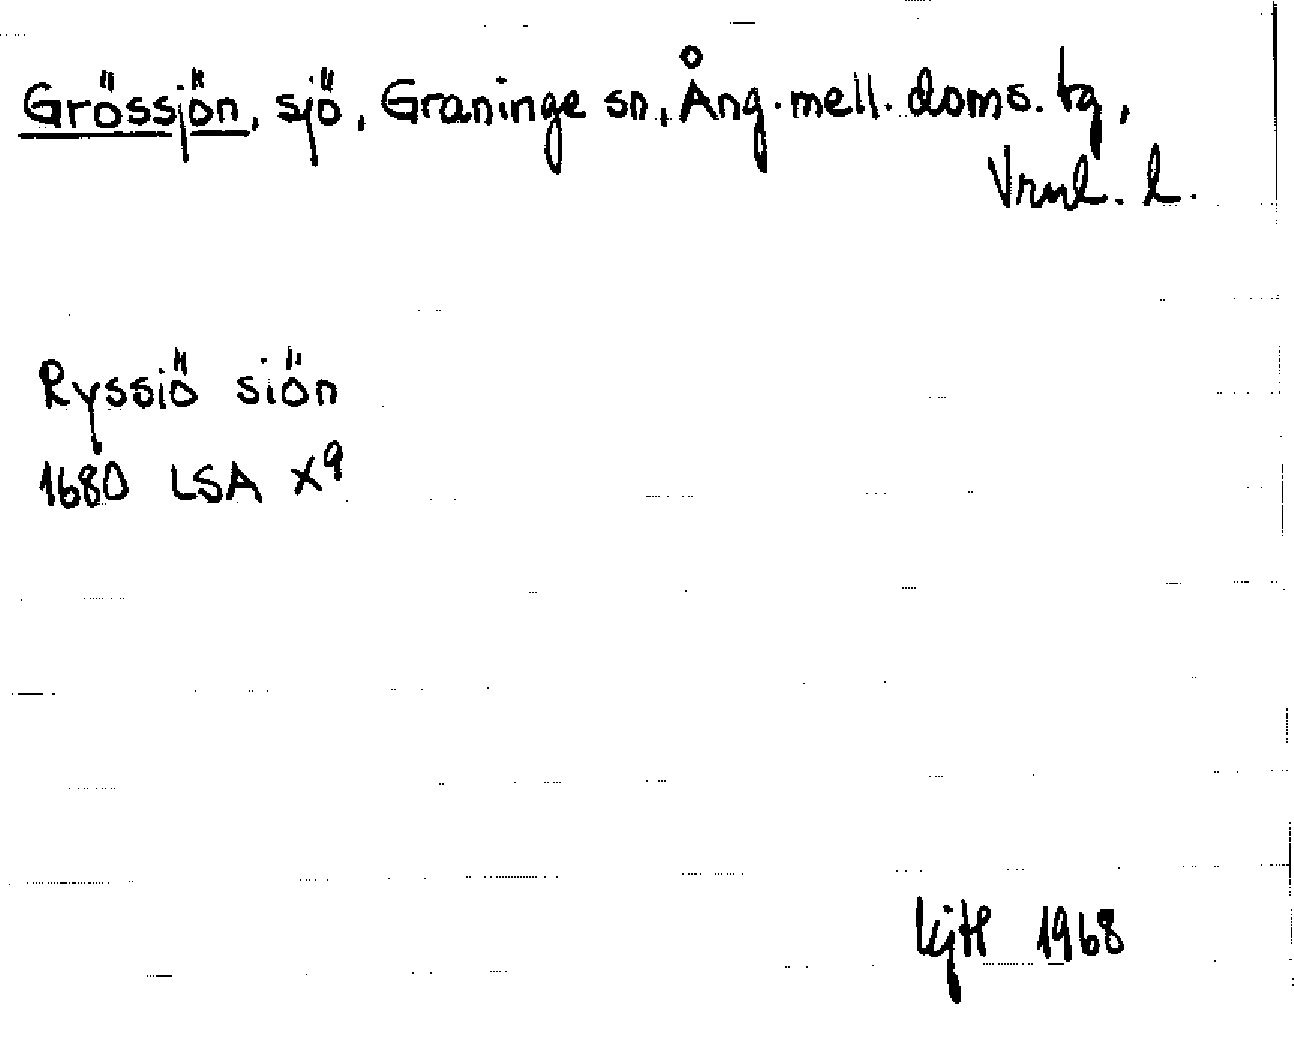 Grössjön, sjö, Graninge sn, Ång. mell. doms. tg,
Vrnl. l.
Ryssiö siön
1680 LSA X9
KjH 1968